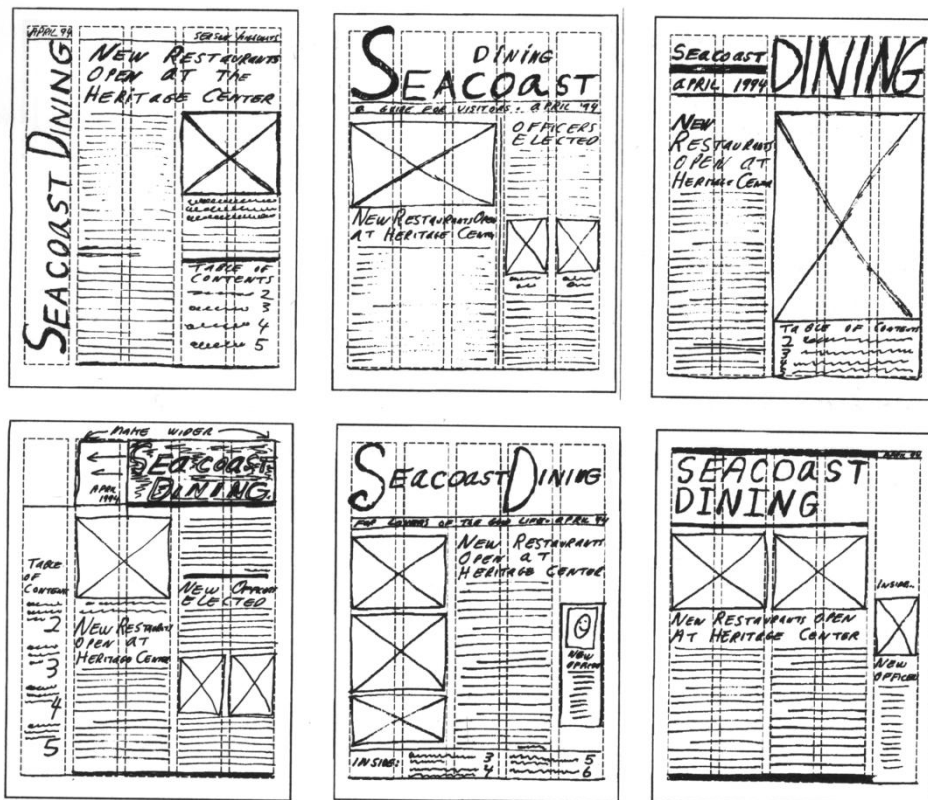 APRIL 94
SEACOAST DINING
NEW RESTAURANTS
OPEN AT THE
HERITAGE CENTER
TABLE OF
CONTENTS
2
3
4
5
DINING
SEACOAST
A GUIDE FOR VISITORS • APRIL '94
OFFICERS
ELECTED
NEW RESTAURANTS OPEN
AT HERITAGE CENTE
SEACOAST
APRIL 1994
DINING
NEW
RESTAURANTS
OPEN AT
HERITAGE CENTE
TABLE OF CONTENT
2
3
MAKE WIDER
SEACOAST
DINING
APRIL
1994
TABLE
OF
CONTENTS
2
3
4
5
NEW OFFICERS
ELECTED
NEW RESTAURANTS
OPEN AT
HERITAGE CENTER
SEACOAST DINING
FOR LOVERS OF THE GOOD LIFE • APRIL 94
NEW RESTAURANTS
OPEN AT
HERITAGE CENTER
NEW
INSIDE:
3
4
5
6
SEACOAST
DINING
APRIL 94
INSIDE..
NEW RESTAURANTS OPEN
AT HERITAGE CENTER
NEW
OFFICER